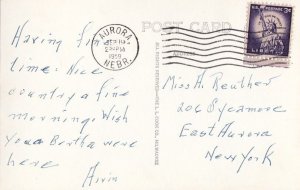 POST CARD
AURORA
2 PM
1959
NEBR.
U.S. POSTAGE
3¢
LIBERTY
Having fine
time. Nice
country & fine
mornings. Wish
you & Bertha were
here
Miss A. Reuther
206 Sycamore
East Aurora
New York